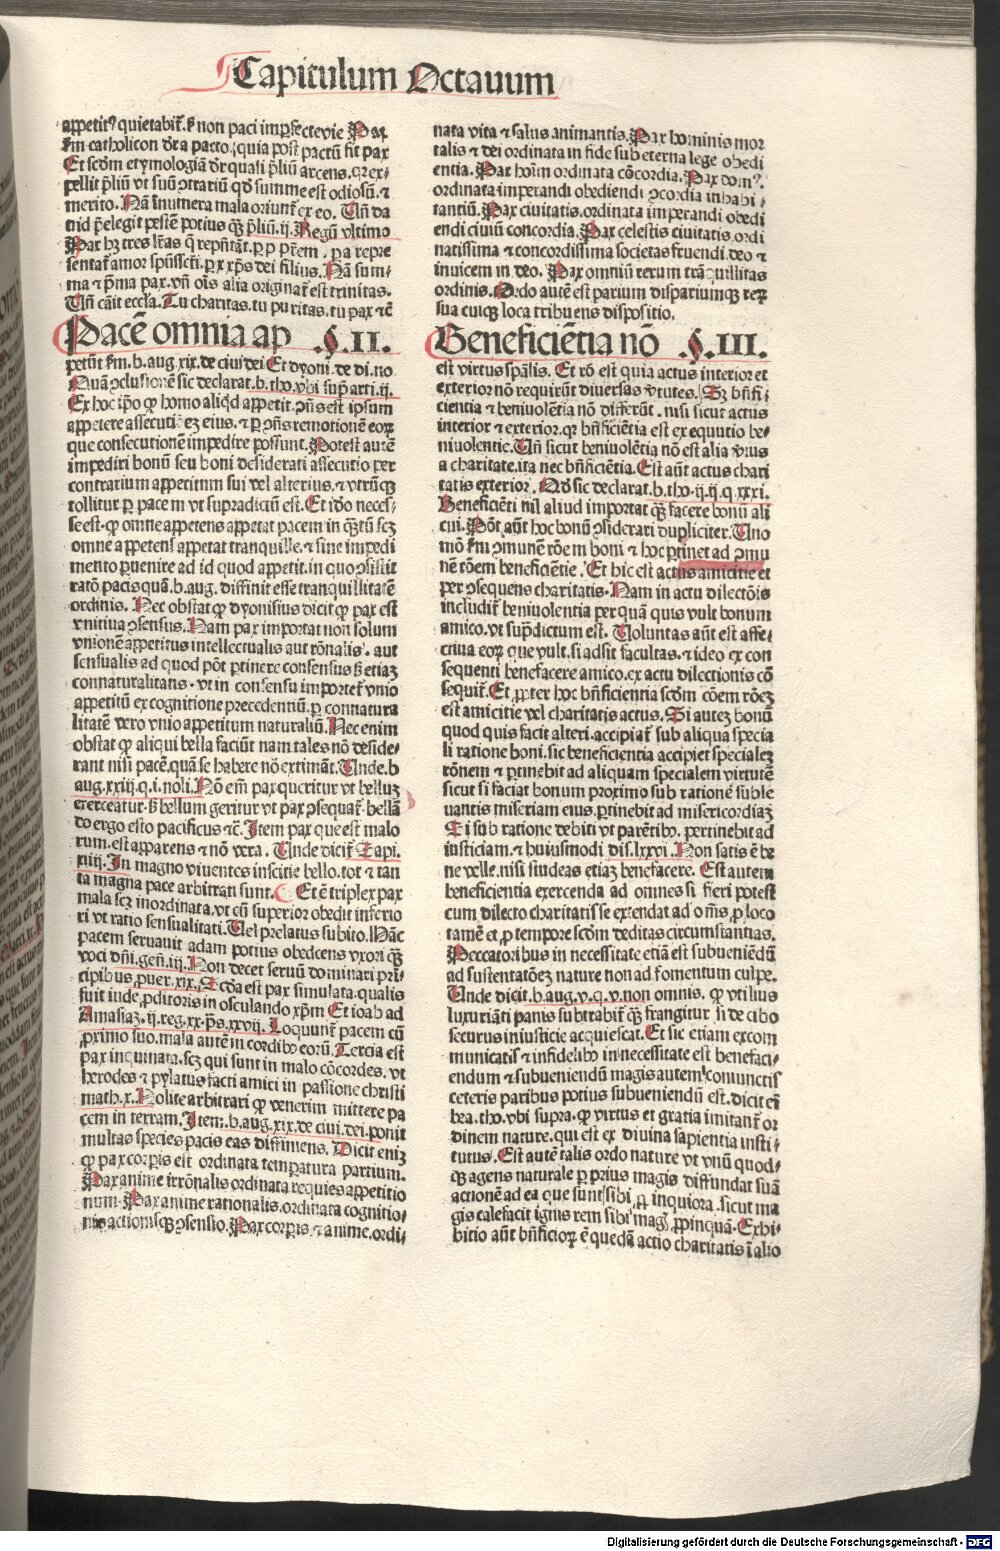 Capitulum Octauum
appetitꝰ quietabit̃. s̃ non paci imperfectevie Pax
s̃m catholicon dr̃ a pacto. quia post pactũ fit pax
Et scd̃m etymologiã dr̃ quasi p̃liũ arcens. qr ex-
pellit p̃liũ vt suũ ꝯtrariũ qd̃ summe est odiosũ. ⁊
merito. Nã innumera mala oriunt̃ ex eo. Vñ da
uid p̃elegit pestẽ potius qȝ p̃liũ. ij. Regũ vltimo
Pax hȝ tres lr̃as q̃ rep̃ñtãt. p p̱ pr̃em . p a repre
sentat̃ amor sp̃ussct̃i. p x xp̃s dei filius. Nã sum-
ma ⁊ p̃ma pax. vñ oĩs alia originat̃ est trinitas.
Vñ cãit eccl̃a. Tu charitas. tu puritas. tu pax ⁊c̃
Pacẽ omnia ap .§.II.
petũt s̃m. b. aug. xix. de ciui dei Et dyoni. de di. no
Quã ꝯclusionẽ sic declarat. b. tho. vbi sup̃ arti. ij.
Ex hoc ip̃o ꝙ homo aliqd appetit. ꝯñs est ipsum
appetere assecutiõeȝ eius. ⁊ p ꝯñs remotionẽ eoꝝ
que consecutionẽ impedire possunt. Potest autẽ
impediri bonũ seu boni desiderati assecutio per
contrarium appetitum sui vel alterius. ⁊ vtrũqȝ
tollitur p pacem vt supradictũ est. Et iđo neces-
se est. ꝙ omne appetens appetat pacem in qȝtũ scȝ
omne appetens appetat tranquille. ⁊ sine impedi
mento puenire ad id quod appetit. in quo ꝯsistit
ratõ pacis quã. b. aug. diffinit esse tranquillitatẽ
ordinis. Nec obstat ꝙ dyonisius dicit ꝙ pax est
vnitiua ꝯsensus. Nam pax importat non solum
vnionẽ appetitus intellectualis aut rõnalis. aut
sensualis ad quod põt ptinere consensus s̃ etiaȝ
connaturalitatis . vt in consensu importet̃ vnio
appetitũ ex cognitione precedentiũ. p connatura
litatẽ vero vnio appetitum naturaliũ. Nec enim
obstat ꝙ aliqui bella faciũt nam tales nõ deside-
rant nisi pacẽ. quã se habere nõ extimãt. Unde. b
aug. xxiij. q. i. noli. Nõ em̃ pax queritur vt belluȝ
exerceatur. s̃ bellum geritur vt pax ꝯsequat̃. bellã
do ergo esto pacificus ⁊c̃. Item pax que est malo
rum. est apparens ⁊ nõ vera . Unde dicit̃ Sapi.
xiiij. In magno viuentes inscitie bello. tot ⁊ tan
ta magna pace arbitrati sunt. Et ẽ triplex pax
mala scȝ inordinata. vt cũ superior obedit inferio
ri vt ratio sensualitati. Vel prelatus subito. Hãc
pacem seruauit adam potius obediens vxori qȝ
voci dñi. geñ. iij. Non decet seruũ dominari pri̅
cipibus. ꝓuer. xix. Scđa est pax simulata. qualis
fuit iude ꝓditoris in osculando xp̃m Et ioab ad
Amasiaȝ. ij. reg. xx. ps̃. xxvij. Loquunt̃ pacem cũ
ꝓximo suo. mala autẽ in cordibꝰ eorũ. Tercia est
pax inquinata. scȝ qui sunt in malo cõcordes. vt
herodes ⁊ pylatus facti amici in passione christi
math. x. Nolite arbitrari ꝙ venerim mittere pa
cem in terram. Item. b. aug. xix. de ciui. dei. ponit
multas species pacis eas diffiniens. Dicit eniȝ
ꝙ pax corp̱is est ordinata temperatura partium.
Pax anime irrõnalis ordinata requies appetitio
num Pax anime rationalis. ordinata cognitio-
nis actionisqȝ ꝯsensio. Pax corp̱is ⁊ anime. ordi-
nata vita ⁊ salus animantis. Pax hominis mor
talis ⁊ dei ordinata in fide sub eterna lege obedi
entia. Pax hoĩm ordinata cõcordia. Pax domꝰ.
ordinata imperandi obediendi ꝯcordia inhabi-
tantiũ. Pax ciuitatis. ordinata imperandi obedi
endi ciuiũ concordia. Pax celestis ciuitatis. ordi
natissima ⁊ concordissima societas fruendi deo ⁊
inuicem in deo. Pax omniũ rerum trãquillitas
ordinis. Ordo autẽ est parium dispariumqȝ reꝝ
sua cuiqȝ loca tribuens dispositio.
Beneficiẽtia nõ .§.III.
est virtus sp̃alis. Et rõ est quia actus interior et
exterior nõ requirũt diuersas v̾tutes. Sȝ bñfi-
cientia ⁊ beniuolẽtia nõ differũt . nisi sicut actus
interior ⁊ exterior. qr bñficiẽtia est exequutio be-
niuolentie. Vñ sicut beniuolẽtia nõ est alia v̾tus
a charitate. ita nec bñficiẽtia. Est aũt actus chari
tatis exterior. Qđ sic declarat. b. tho. ij. ij. q. xxxi.
Beneficiẽti nil aliud importat qȝ facere bonũ ali
cui. Põt aũt hoc bonũ ꝯsiderari dupliciter. Uno
mõ s̃m ꝯmunẽ rõem boni ⁊ hoc ptinet ad ꝯmu
nẽ rõem beneficiẽtie. Et hic est actus amicitie et
per ꝯsequens charitatis. Nam in actu dilectõis
includit̃ beniuolentia per quã quis vult bonum
amico. vt sup̃dictum est. Voluntas aũt est affe-
ctiua eoꝝ que vult. si adsit facultas. ⁊ ideo ex con
sequenti benefacere amico. ex actu dilectionis cõ
sequit̃. Et ꝓpter hoc bñficientia scđm cõem rõeȝ
est amicitie vel charitatis actus. Si auteȝ bonũ
quod quis facit alteri. accipiat̃ sub aliqua specia
li ratione boni. sic beneficientia accipiet specialeȝ
rõnem ⁊ ptinebit ad aliquam specialem virtutẽ
sicut si faciat bonum proximo sub rationẽ suble
uantis miseriam eius. ptinebit ad misericordiaȝ
Si sub ratione debiti vt parẽtibꝰ. pertinebit ad
iusticiam. ⁊ huiusmodi dis. lxxvi. Non satis ẽ be
ne velle. nisi studeas etiaȝ benefacere. Est autem
beneficientia exercenda ad omnes si fieri potest
cum dilectio charitatis se extendat ad oẽs. ꝓ loco
tamẽ et ꝓ tempore scđm deditas circumstantias.
Peccatoribus in necessitate etiã est subueniẽdũ
ad sustentatõeȝ nature non ad fomentum culpe.
Unde dicit. b. aug. v. q. v. non omnis. ꝙ vtilius
luxuriãti panis subtrabit̃ qȝ frangitur si de cibo
securus iniusticie acquiescat. Et sic etiam excom
municatis ⁊ infidelibꝰ in necessitate est benefaci-
endum ⁊ subueniendũ magis autem coniunctis
ceteris paribus potius subueniendũ est. dicit em̃
bea. tho. vbi supra. ꝙ virtus et gratia imitant̃ or
dinem nature. qui est ex diuina sapientia insti-
tutus. Est autẽ talis ordo nature vt vnũ quod-
qȝ agens naturale p prius magis diffundat suã
actionẽ ad ea que sunt sibi ꝓpinquiora. sicut ma
gis calefacit ignis rem sibi mag̾ ꝓpinquã. Exhi-
bitio aũt bñficioꝝ ẽ quedã actio charitatis ĩ alio
Digitalisierung gefördert durch die Deutsche Forschungsgemeinschaft - DFG